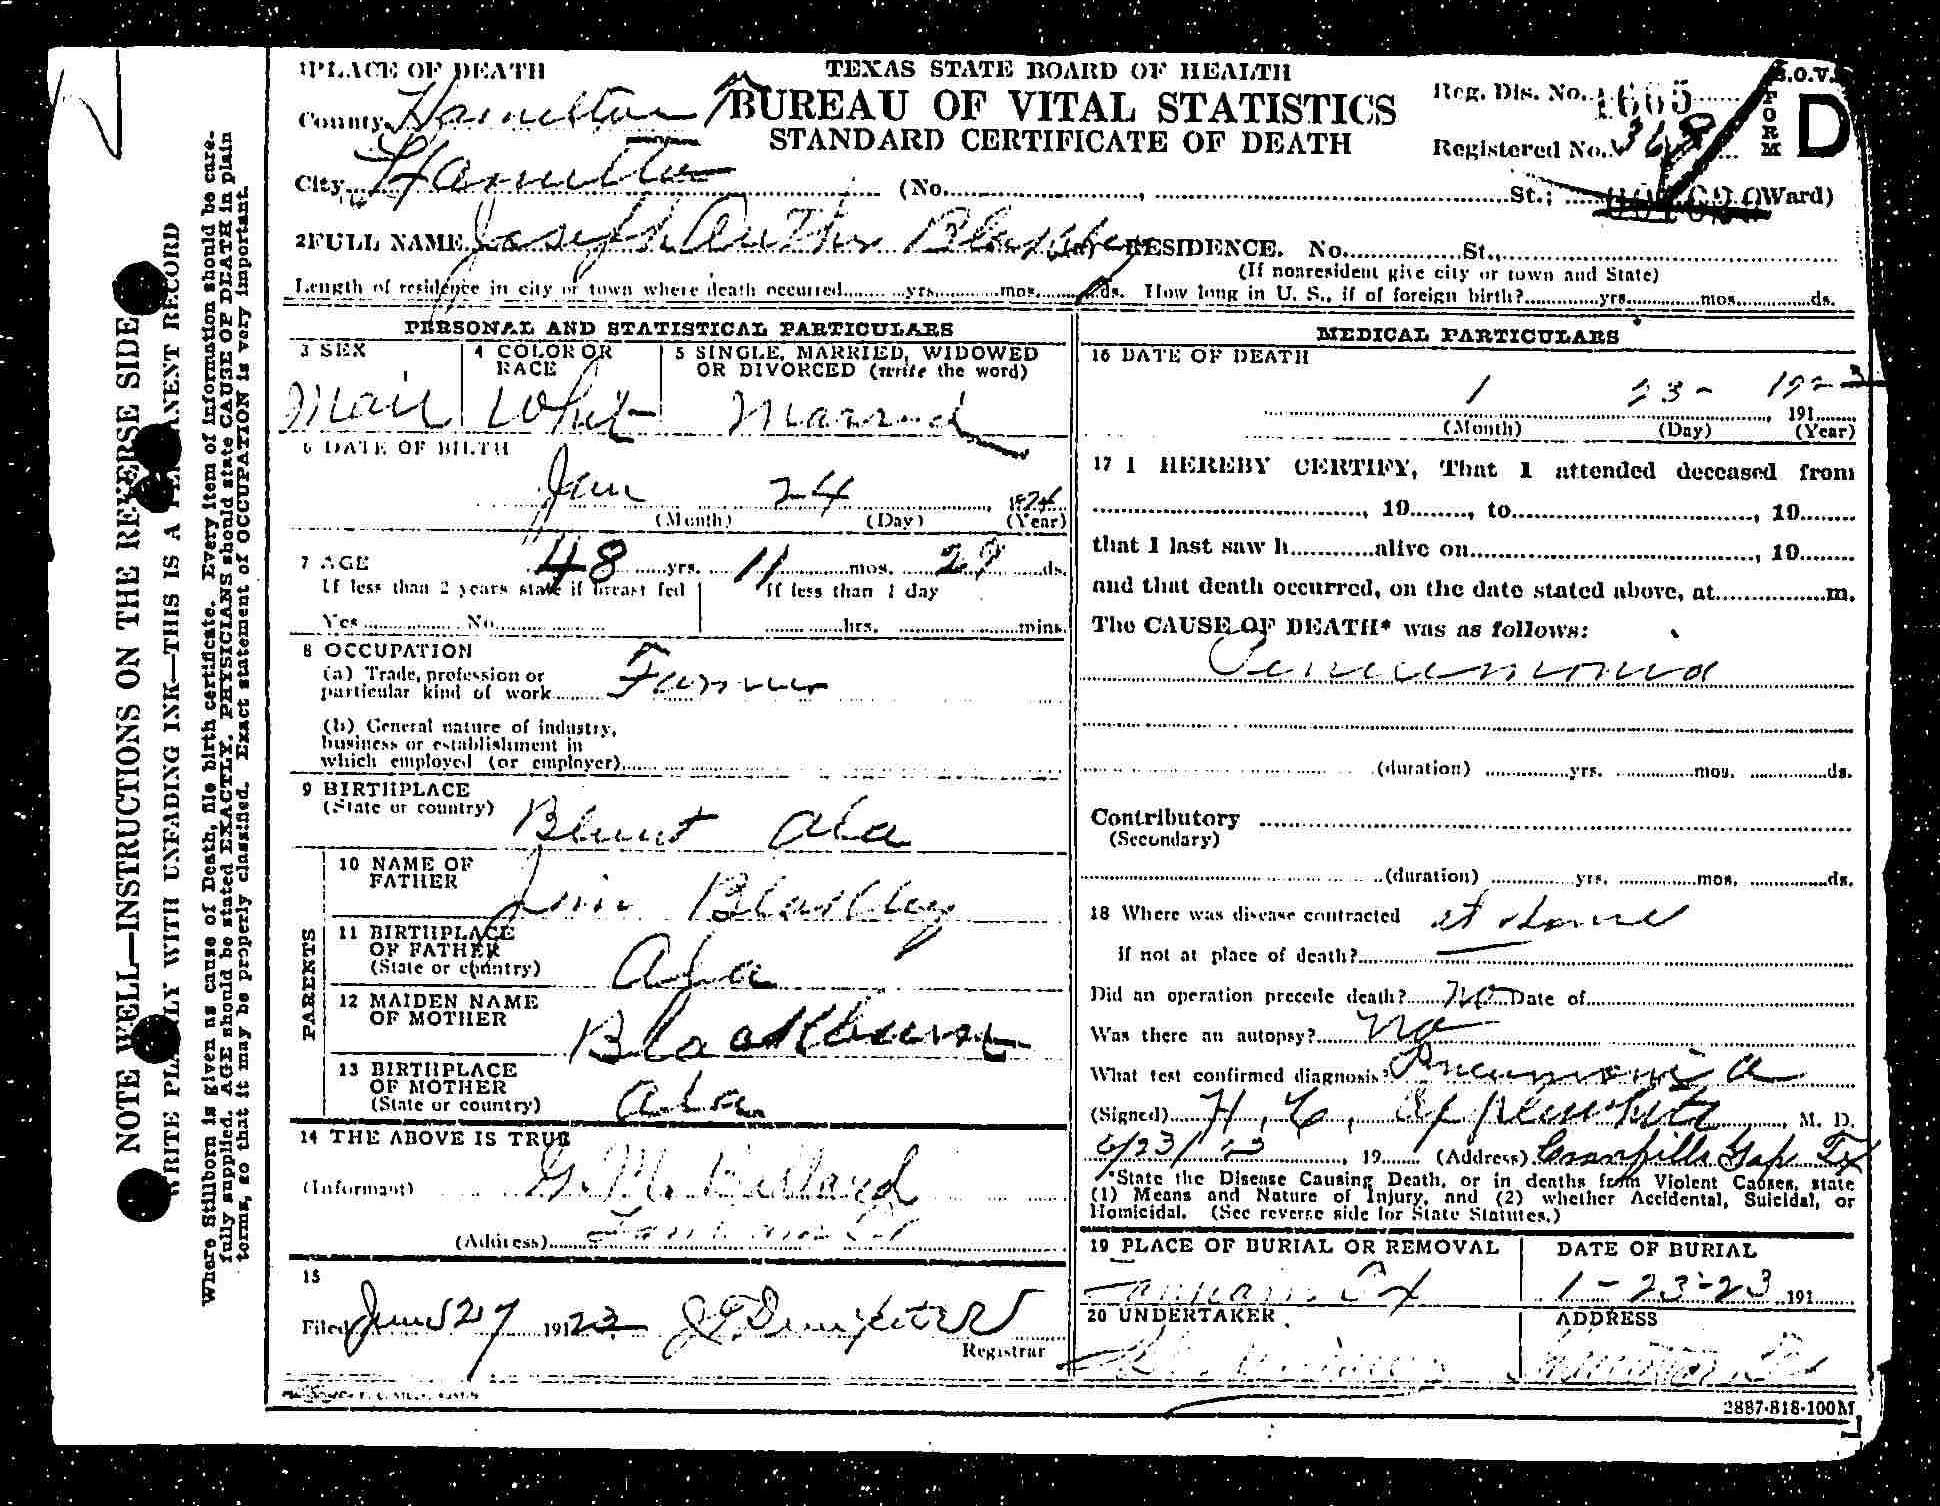 1 PLACE OF DEATH
TEXAS STATE BOARD OF HEALTH
BUREAU OF VITAL STATISTICS
STANDARD CERTIFICATE OF DEATH
County Hamilton
City Hamilton (No. , St.; Ward)
Reg. Dis. No. 1665
Registered No. 368
B.O.V.S.
FORM D
2 FULL NAME Joseph Arther (a) RESIDENCE. No. St.,
(If nonresident give city or town and State)
Length of residence in city or town where death occurred yrs. mos. ds. How long in U. S., if of foreign birth? yrs. mos. ds.
PERSONAL AND STATISTICAL PARTICULARS
3 SEX
4 COLOR OR RACE
5 SINGLE, MARRIED, WIDOWED
OR DIVORCED (write the word)
Mail White Married
6 DATE OF BIRTH
Jan 24 1874
(Month) (Day) (Year)
7 AGE 48 yrs. 11 mos. 29 ds.
If less than 2 years state if breast fed If less than 1 day
Yes No hrs. mins.
8 OCCUPATION
(a) Trade, profession or
particular kind of work Farmer
(b) General nature of industry,
business or establishment in
which employed (or employer)
9 BIRTHPLACE
(State or country) Blunt Ala
PARENTS
10 NAME OF
FATHER Jim Blakley
11 BIRTHPLACE
OF FATHER
(State or country) Ala
12 MAIDEN NAME
OF MOTHER Blackburn
13 BIRTHPLACE
OF MOTHER
(State or country) Ala
14 THE ABOVE IS TRUE
(Informant) G. M. Ballard
(Address)
15
Filed 27 1923
Registrar
MEDICAL PARTICULARS
16 DATE OF DEATH
1 23 - 1923
191
(Month) (Day) (Year)
17 I HEREBY CERTIFY, That I attended deceased from
, 19 , to , 19
that I last saw h alive on , 19
and that death occurred, on the date stated above, at m.
The CAUSE OF DEATH* was as follows:
Peneumonia
(duration) yrs. mos. ds.
Contributory
(Secondary)
(duration) yrs. mos. ds.
18 Where was disease contracted at home
if not at place of death?
Did an operation precede death? no Date of
Was there an autopsy? no
What test confirmed diagnosis? Pneumonia
(Signed) H. C. Applewhite, M. D.
23/23, 19 (Address) Cranfills Gap Tx
*State the Disease Causing Death, or in deaths from Violent Causes, state
(1) Means and Nature of Injury, and (2) whether Accidental, Suicidal, or
Homicidal. (See reverse side for State Statutes.)
19 PLACE OF BURIAL OR REMOVAL
DATE OF BURIAL
1 - 23 - 23 191
20 UNDERTAKER
ADDRESS
2887-818-100M
NOTE WELL—INSTRUCTIONS ON THE REVERSE SIDE
WRITE PLAINLY WITH UNFADING INK—THIS IS A PERMANENT RECORD
Where Stillborn is given as cause of Death, file birth certificate. Every item of information should be care-
fully supplied. AGE should be stated EXACTLY. PHYSICIANS should state CAUSE OF DEATH in plain
terms, so that it may be properly classified. Exact statement of OCCUPATION is very important.